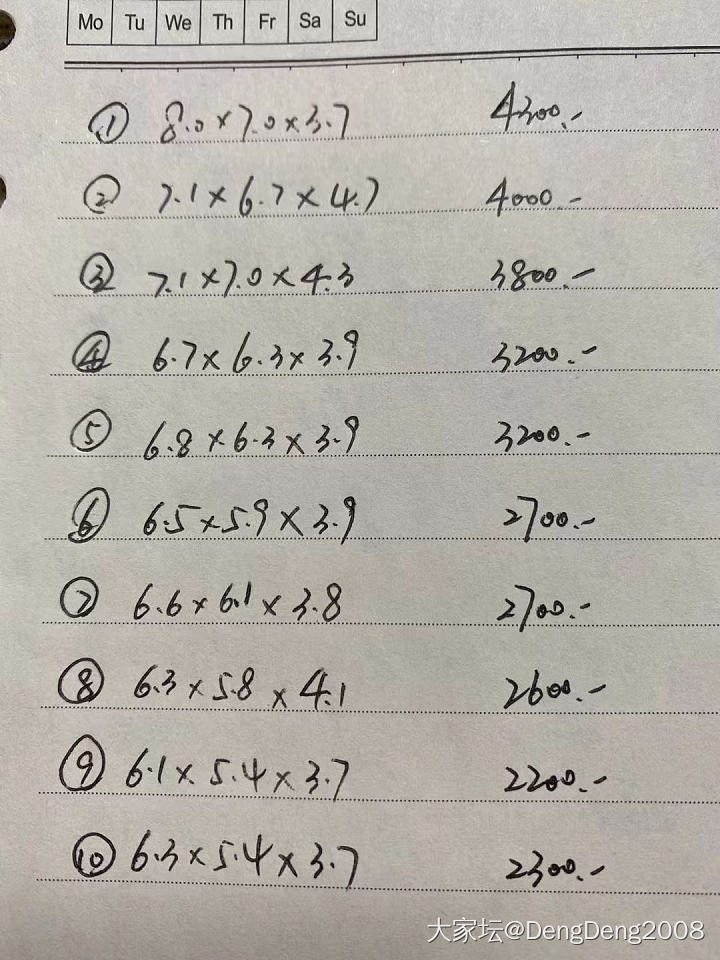 Mo Tu We Th Fr Sa Su
① 8.0×7.0×3.7 4300.-
② 7.1×6.7×4.7 4000.-
③ 7.1×7.0×4.3 3800.-
④ 6.7×6.3×3.9 3200.-
⑤ 6.8×6.3×3.9 3200.-
⑥ 6.5×5.9×3.9 2700.-
⑦ 6.6×6.1×3.8 2700.-
⑧ 6.3×5.8×4.1 2600.-
⑨ 6.1×5.4×3.7 2200.-
⑩ 6.3×5.4×3.7 2300.-
大家坛@DengDeng2008